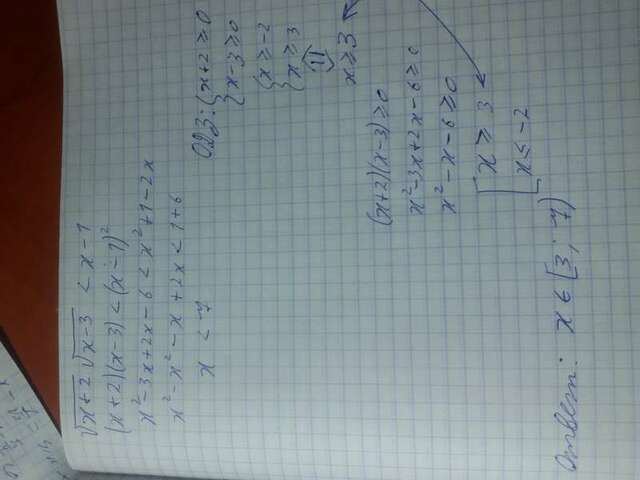 √x+2 √x-3 < x-1
(x+2)(x-3) < (x-1)²
x²-3x+2x-6 < x²+1-2x
x²-x²-x+2x < 1+6
x < 7
ОДЗ: { x+2 ≥ 0
{ x-3 ≥ 0
{ x ≥ -2
{ x ≥ 3
⇓
x ≥ 3
(x+2)(x-3) ≥ 0
x²-3x+2x-6 ≥ 0
x²-x-6 ≥ 0
[ x ≥ 3
[ x ≤ -2
Ответ: x ∈ [3; 7)